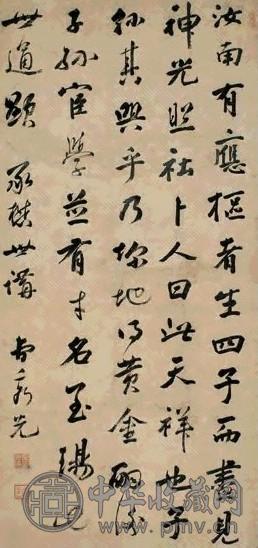 汝南有應樞者生四子而晝見
神光照社卜人曰此天祥也子
孫其興乎乃地得黃金嗣後
子孫宦學並有才名至瑒七
世通顯 承世講 曹秀先
中华收藏网